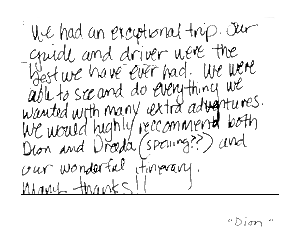 We had an exceptional trip. Our
guide and driver were the
best we have ever had. We were
able to see and do everything we
wanted with many extra adventures.
We would highly reccommend both
Dion and Dreda (spelling??) and
our wonderful itinerary.
Many thanks!!
"Dion"